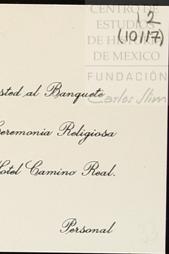 CENTRO DE
ESTUDIOS
DE HISTORIA
DE MEXICO
FUNDACIÓN
Carlos Slim
12
(10/17)
usted al Banquete
Ceremonia Religiosa
Hotel Camino Real.
Personal